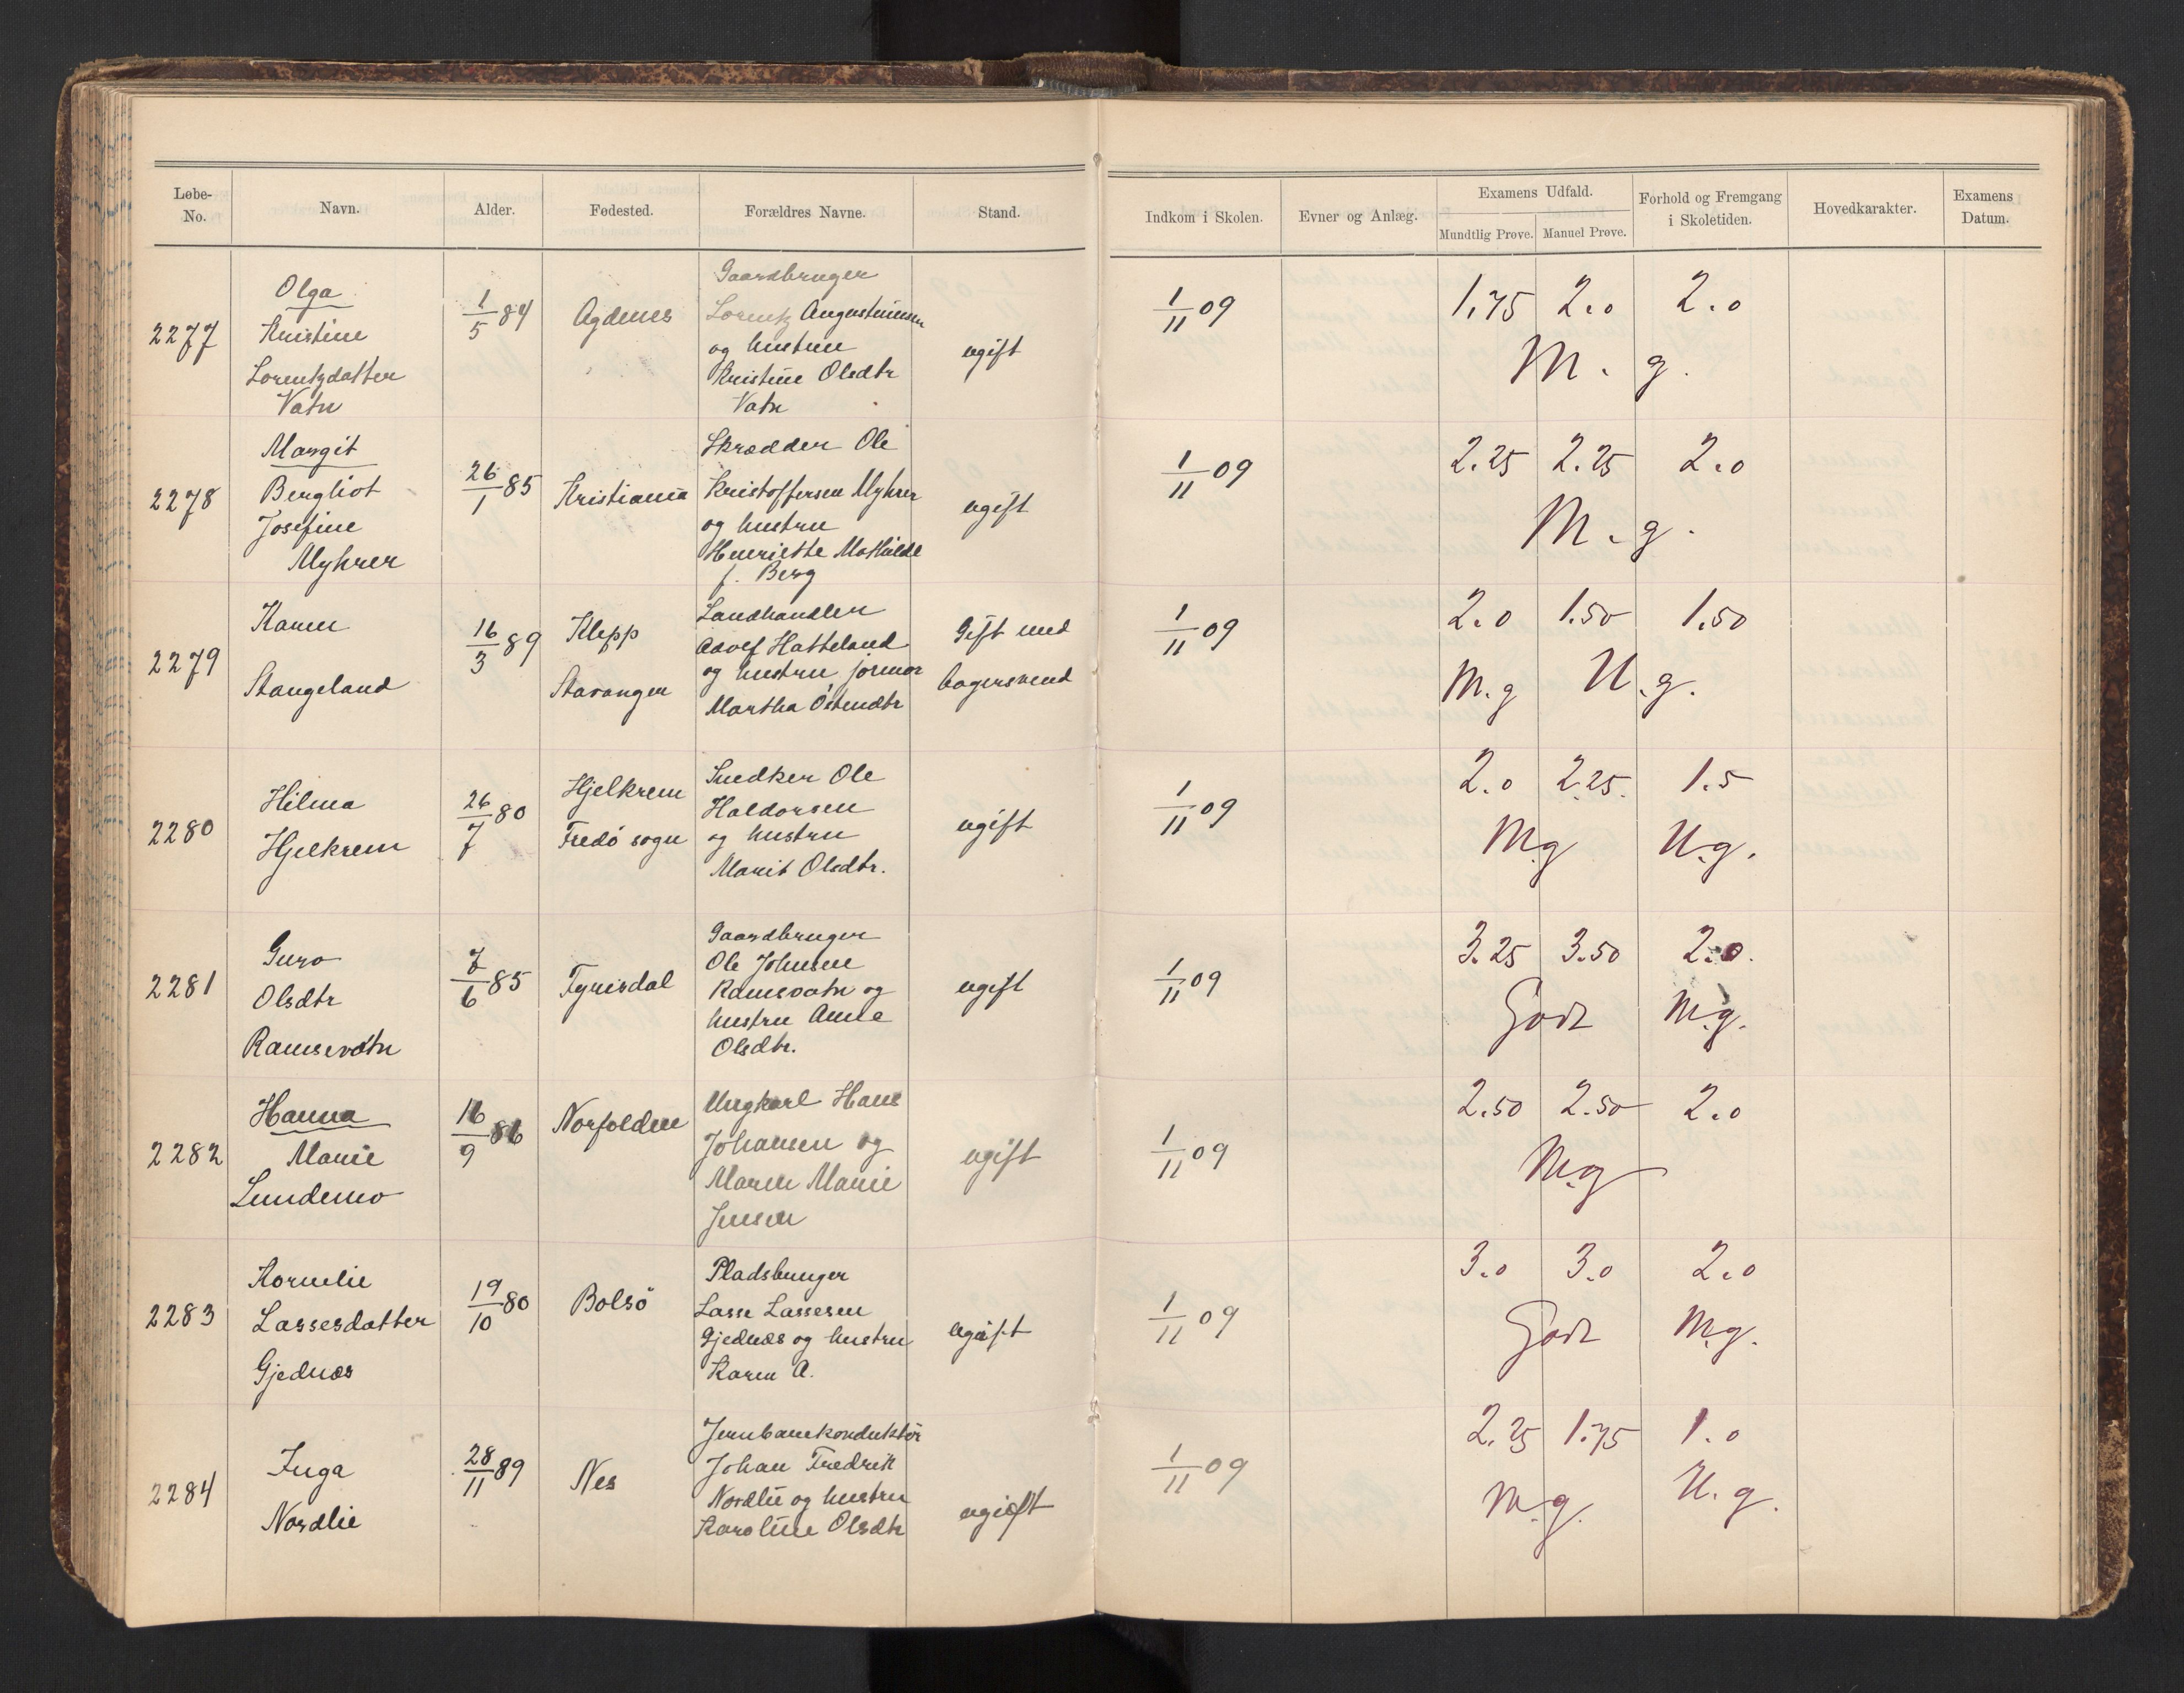 Løbe-No. Navn. Alder. Fødested. Forældres Navne. Stand. Indkom i Skolen. Evner og Anlæg. Examens Udfald. Mundtlig Prøve. Manuel Prøve. Forhold og Fremgang i Skoletiden. Hovedkarakter. Examens Datum.
2277
Olga
Kristine
Lorentzdatter
Vatn
1/5 84
Agdenes
Gaardbruger
Lorentz Augustinusen
og hustru
Kristine Olsdtr
Vatn
ugift
1/11 09
1.75 2.0 2.0
M. g.
2278
Margit
Bergliot
Josefine
Myhrer
26/1 85
Kristiania
Skrædder Ole
Kristoffersen Myhrer
og hustru
Henriette Mathilde
f. Berg
ugift
1/11 09
2.25 2.25 2.0
M. g.
2279
Karen
Stangeland
16/3 89
Klepp
Stavanger
Landhandler
Adolf Hatteland
og hustru jormor
Martha Östendtr
Gift med
bagersvend
1/11 09
2.0 1.50 1.50
M.g U.g.
2280
Hilma
Hjelkrem
26/7 80
Hjelkrem
Fredö sogn
Snedker Ole
Haldorsen
og hustru
Marit Olsdtr.
ugift
1/11 09
2.0 2.25. 1.5
M.g U.g.
2281
Guro
Olsdtr
Ramsevatn
7/6 85
Fyrisdal
Gaardbruger
Ole Johnsen
Ramsvatn og
hustru Anne
Olsdtr.
ugift
1/11 09
3.25 3.50 2.0.
Godt M.g.
2282
Hanna
Marie
Lundemo
16/9 86
Norfolden
Ungkarl Hans
Johansen og
Maren Marie
Jensen
ugift
1/11 09
2.50 2.50 2.0
M.g
2283
Kornelie
Lassesdatter
Gjednæs
19/10 80
Bolsö
Pladsbruger
Lasse Lassesen
Gjednæs og hustru
Karen A.
ugift
1/11 09
3.0 3.0 2.0
Godt M.g.
2284
Inga
Nordlie
28/11 89
Nes
Jernbanekonduktör
Johan Fredrik
Nordlie og hustru
Karoline Olsdtr
ugift
1/11 09
2.25 1.75 1.0
M.g. U.g.